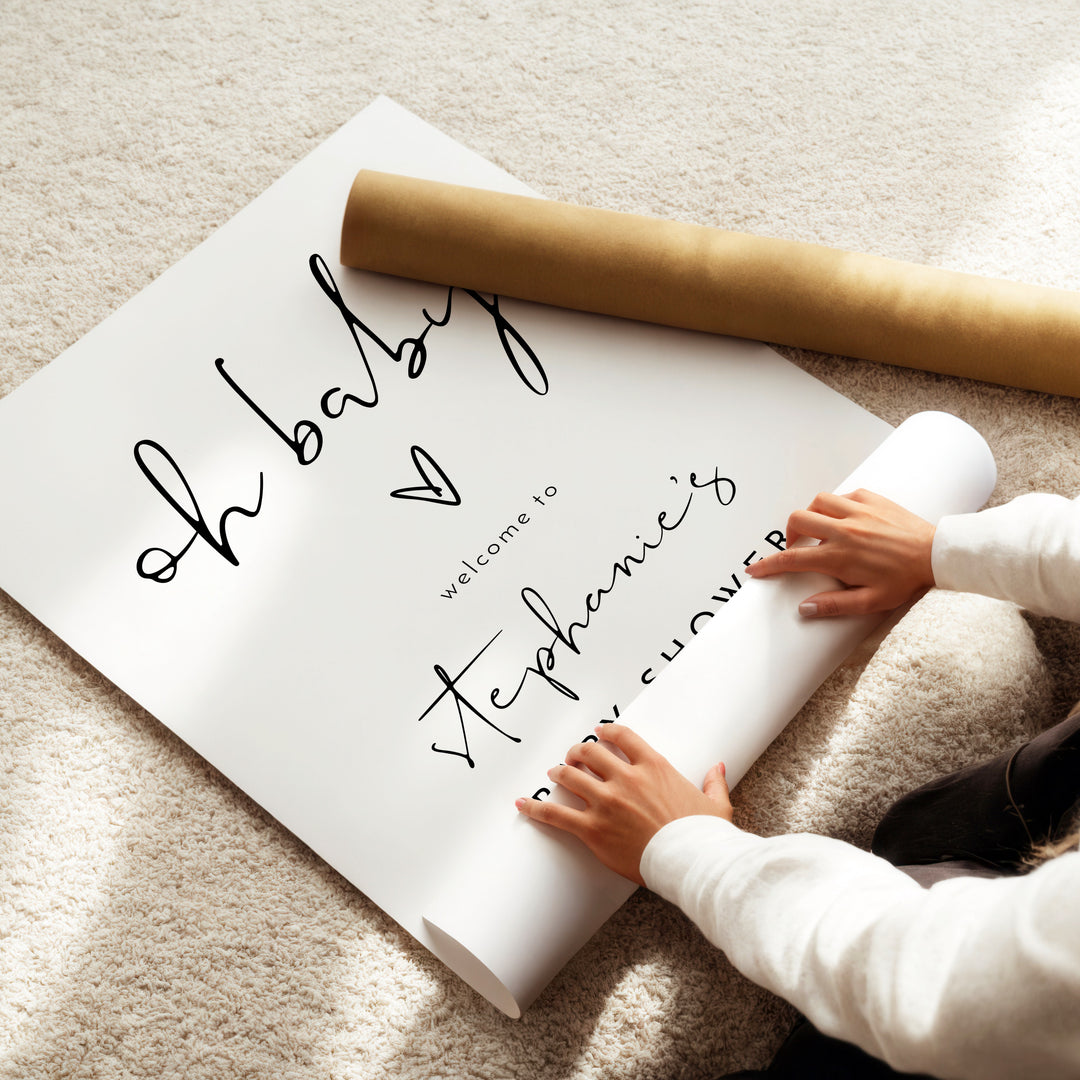 oh baby
welcome to
stephanie's
BABY SHOWER